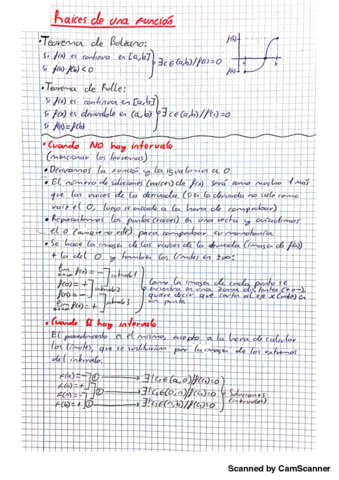 Raíces de una función
• Teorema de Bolzano:
Si f(x) es continua en [a,b]
Si f(a)·f(b) < 0
∃ c ∈ (a,b) / f(c) = 0
f(b)
f(a)
a
b
• Teorema de Rolle:
Si f(x) es continua en [a,b]
Si f(x) es derivable en (a,b)
Si f(a) = f(b)
∃ c ∈ (a,b) / f'(c) = 0
• Cuando NO hay intervalo
(mencionar los teoremas)
• Derivamos la función y la igualamos a 0.
• El número de soluciones (raíces) de f(x) será como mucho 1 más
que las raíces de la derivada (Si la derivada no sale como
raíz el 0, luego se añade a la hora de comprobar)
• Representamos los puntos (raíces) en una recta y añadimos
el 0 (aunque no esté) para comprobar su monotonía
• Se hace la imagen de las raíces de la derivada (imagen de f(x))
+ la del 0 y también los límites en ±∞:
lim f(x) = -
f(0) = +
f( ) = -
lim f(x) = +
intervalo 1
intervalo 2
intervalo 3
Como la imagen de cada punto se
encuentra en una zona distinta (+ o -),
quiere decir que corta al eje x (raíz) en
un punto
• Cuando SÍ hay intervalo
El procedimiento es el mismo, excepto a la hora de calcular
los límites, que se sustituirían por la imagen de los extremos
del intervalo.
f(a) = -
f(0) = +
f( ) = -
f(b) = +
① → ∃! c₁ ∈ (a,0) / f(c₁) = 0
② → ∃! c₂ ∈ (0, ) / f(c₂) = 0
③ → ∃! c₃ ∈ ( ,b) / f(c₃) = 0
Soluciones
(intervalos)
Scanned by CamScanner